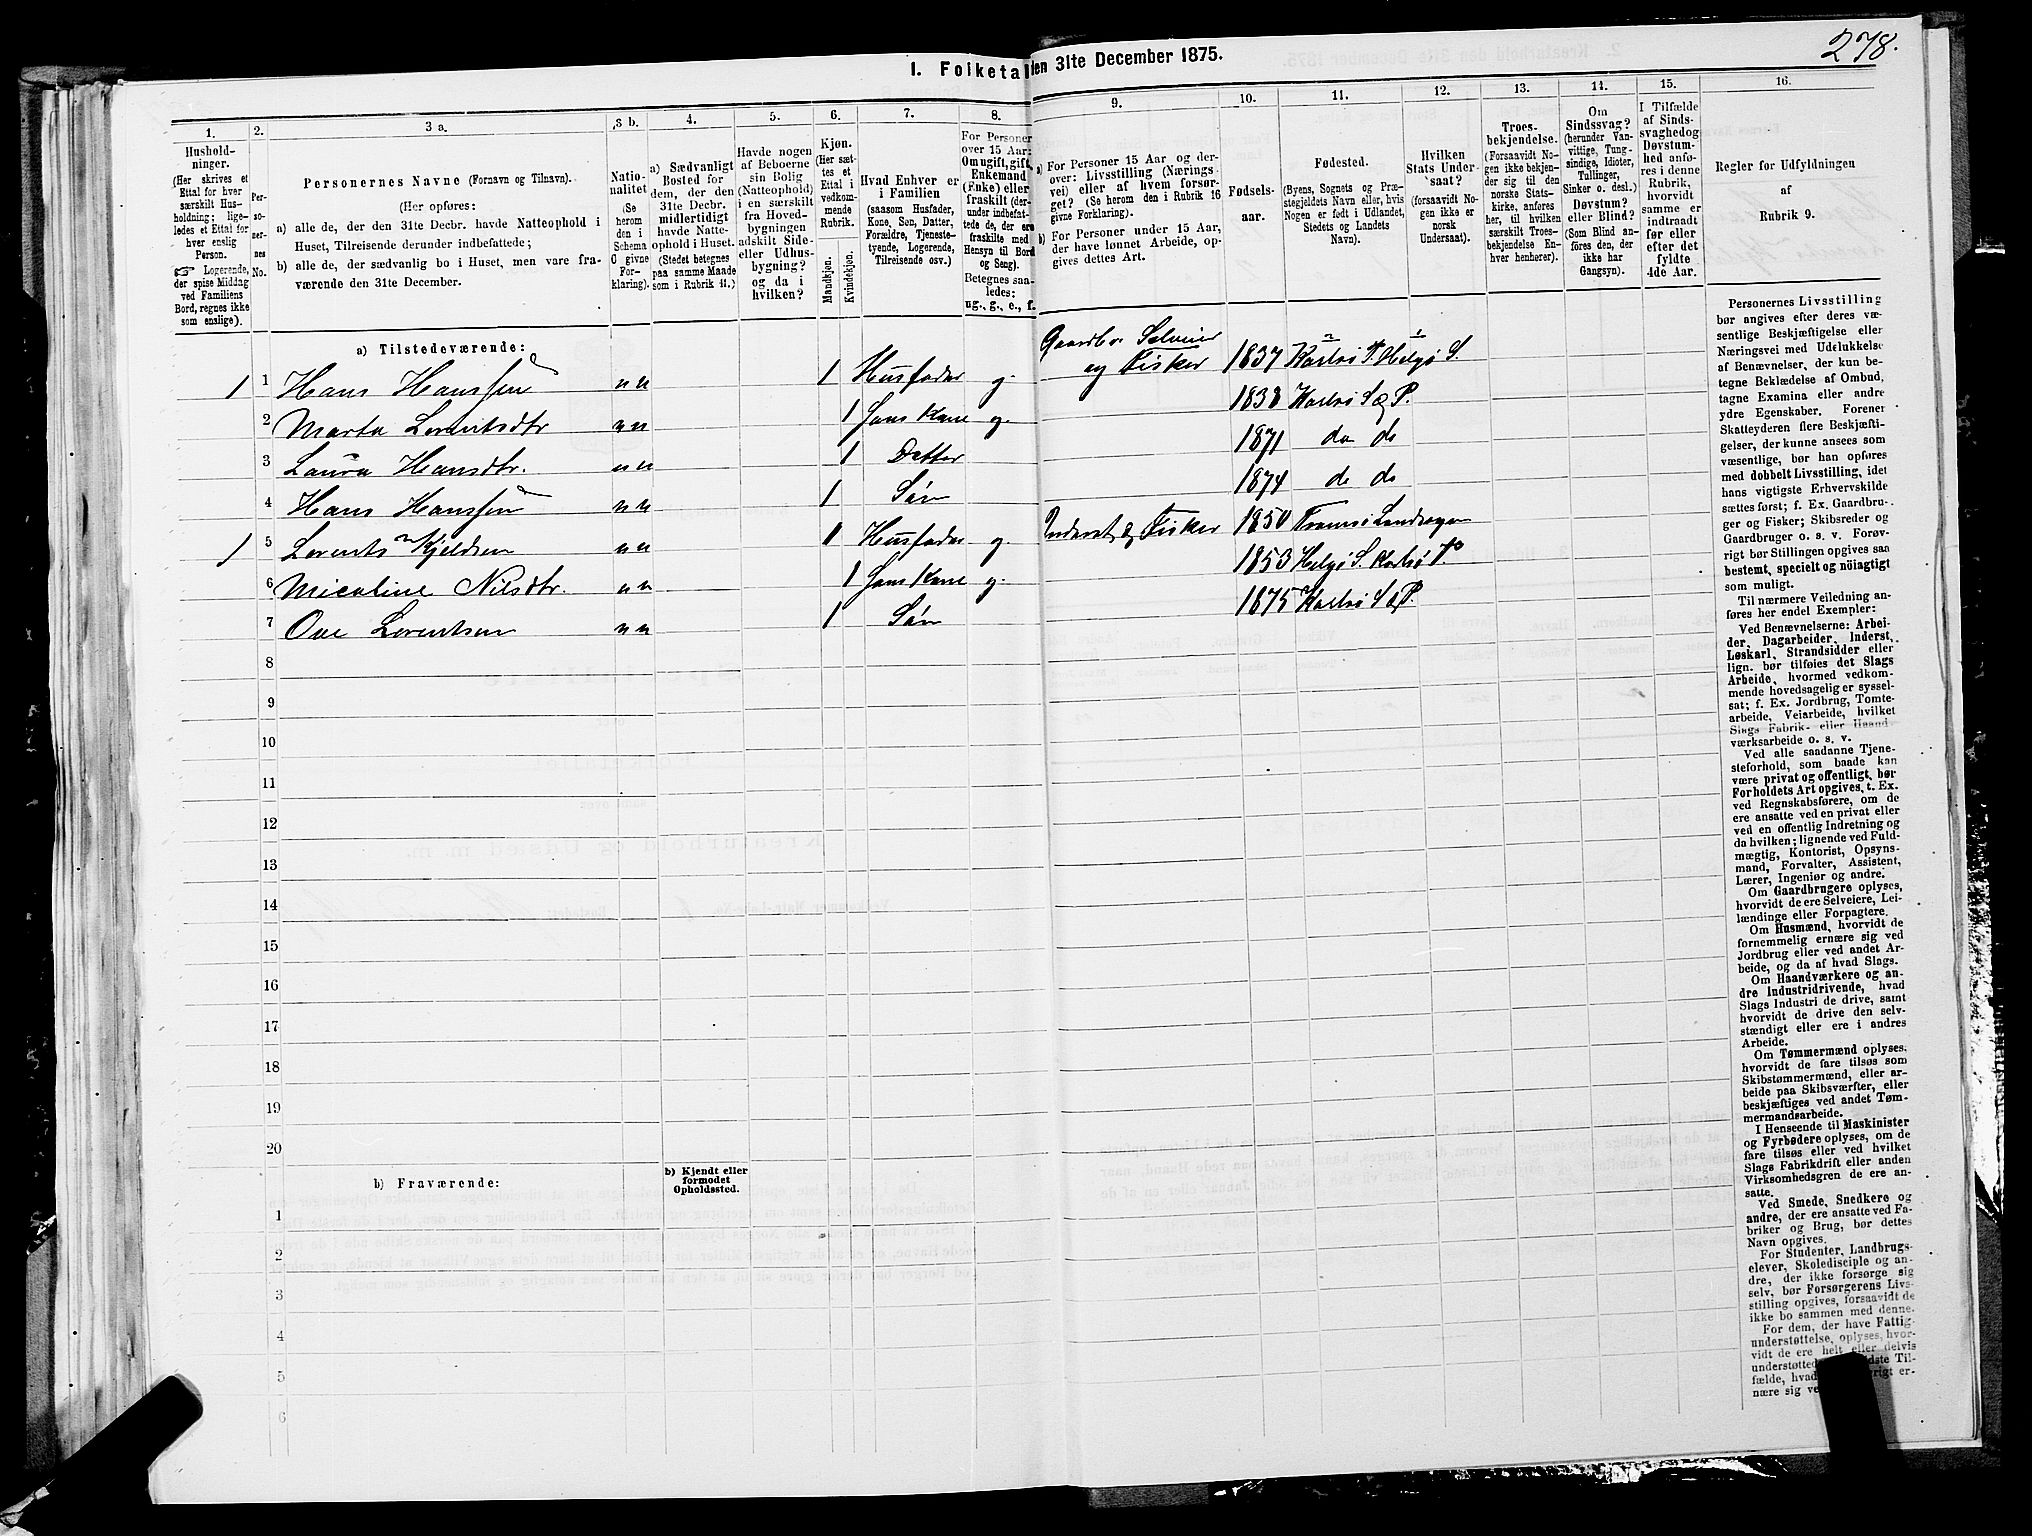 278.
I. Folketal den 31te December 1875.
1. 2. 3 a. 3 b. 4. 5. 6. 7. 8. 9. 10. 11. 12. 13. 14. 15. 16.
Husholdninger.
(Her skrives et
Ettal for hver
særskilt Hus-
holdning; lige-
ledes et Ettal for
hver enslig
Person.
☞ Logerende,
der spise Middag
ved Familiens
Bord, regnes ikke
som enslige).
Per-
so-
ner-
nes
No.
Personernes Navne (Fornavn og Tilnavn).
(Her opføres:
a) alle de, der den 31te Decbr. havde Natteophold i
Huset, Tilreisende derunder indbefattede;
b) alle de, der sædvanlig bo i Huset, men vare fra-
værende den 31te December.
Natio-
nalitet
(Se
herom
den i
Schema
C givne
For-
klaring).
a) Sædvanligt
Bosted for
dem, der den
31te Decbr.
midlertidigt
havde Natte-
ophold i Huset.
(Stedet betegnes
paa samme Maade
som i Rubrik 11.)
Havde nogen
af Beboerne
sin Bolig
(Natteophold)
i en særskilt
fra Hoved-
bygningen
adskilt Side-
eller Udhus-
bygning?
og da i
hvilken?
Kjøn.
(Her sæt-
tes et
Ettal i
vedkom-
mende
Rubrik.
Mandkjøn.
Kvindekjøn.
Hvad Enhver er
i Familien
(saasom Husfader,
Kone, Søn, Datter,
Forældre, Tjeneste-
tyende, Logerende,
Tilreisende osv.)
For Personer
over 15 Aar:
Om ugift, gift,
Enkemand
(Enke) eller
fraskilt (der-
under indbefat-
tede de, der ere
fraskilte med
Hensyn til Bord
og Seng).
Betegnes saa-
ledes:
ug., g., e., f.
a) For Personer 15 Aar og der-
over: Livsstilling (Nærings-
vei) eller af hvem forsør-
get? (Se herom den i Rubrik 16
givne Forklaring).
b) For Personer under 15 Aar,
der have lønnet Arbeide, op-
gives dettes Art.
Fødsels-
aar.
Fødested.
(Byens, Sognets og Præ-
stegjeldets Navn eller, hvis
Nogen er født i Udlandet,
Stedets og Landets
Navn).
Hvilken
Stats Under-
saat?
(forsaavidt No-
gen ikke er
norsk
Undersaat).
Troes-
bekjendelse.
(Forsaavidt No-
gen ikke bekjen-
der sig til den
norske Stats-
kirke, anføres
her, til hvilken
særskilt Troes-
bekjendelse En-
hver henhører).
Om
Sindssvag?
(herunder Van-
vittige, Tung-
sindige, Idioter,
Tullinger,
Sinker o. desl.)
Døvstum?
eller Blind?
(Som Blind an-
føres den, der
ikke har
Gangsyn).
I Tilfælde
af Sinds-
svaghed og
Døvstum-
hed anfø-
res i denne
Rubrik,
hvorvidt
samme er
indtraadt
før eller
efter det
fyldte
4de Aar.
Regler for Udfyldningen
af
Rubrik 9.
a) Tilstedeværende:
1 1 Hans Hanssen nn 1 Husfader g. Gaardbr. Selveier og Fisker 1837 Karlsö P. Helgö S.
2 Marta Lorentsdtr nn 1 Hans Kone g. 1838 Karlsö S & P.
3 Laura Hansdtr. nn 1 Datter 1871 do do
4 Hans Hanssen nn 1 Søn 1874 do do
1 5 Lorents Kjeldsen nn 1 Husfader g. Inderst & Fisker 1850 Tromsö Landsogn
6 Nicoline Nilsdtr. nn 1 Hans Kone g. 1853 Helgö S. Karlsö P.
7 Ove Lorentsen nn 1 Søn 1875 Karlsö S & P.
8
9
10
11
12
13
14
15
16
17
18
19
20
b) Fraværende:
b) Kjendt eller
formodet
Opholdssted.
1
2
3
4
5
6
Personernes Livsstilling
bør angives efter deres væ-
sentlige Beskjæftigelse eller
Næringsvei med Udelukkelse
af Benævnelser, der kun be-
tegne Beklædelse af Ombud,
tagne Examina eller andre
ydre Egenskaber. Forener
Skatteyderen flere Beskjæfti-
gelser, der kunne ansees som
væsentlige, bør han opføres
med dobbelt Livsstilling, idet
hans vigtigste Erhvervskilde
sættes først; f. Ex. Gaardbru-
ger og Fisker; Skibsreder og
Gaardbruger o. s. v. Forøv-
rigt bør Stillingen opgives saa
bestemt, specielt og nøiagtigt
som muligt.
Til nærmere Veiledning an-
føres her endel Exempler:
Ved Benævnelserne: Arbei-
der, Dagarbeider, Inderst,
Løskarl, Strandsidder eller
lign. bør tilføies det Slags
Arbeide, hvormed vedkom-
mende hovedsagelig er syssel-
sat; f. Ex. Jordbrug, Tomte-
arbeide, Veiarbeide, hvilket
Slags Fabrik- eller Haand-
værksarbeide o. s. v.
Ved alle saadanne Tjene-
steforhold, som baade kan
være privat og offentligt, bør
Forholdets Art opgives, t. Ex.
ved Regnskabsførere, om de
ere ansatte ved en privat eller
ved en offentlig Indretning og
da hvilken; lignende ved Fuld-
mægtig, Kontorist, Opsyns-
mand, Forvalter, Assistent,
Lærer, Ingeniør og andre.
Om Gaardbrugere oplyses,
hvorvidt de ere Selveiere, Lei-
lændinge eller Forpagtere.
Om Husmænd, hvorvidt de
fornemmelig ernære sig ved
Jordbrug eller ved andet Ar-
beide, og da af hvad Slags.
Om Haandværkere og an-
dre Industridrivende, hvad
Slags Industri de drive, samt
hvorvidt de drive den selv-
stændigt eller ere i andres
Arbeide.
Om Tømmermænd oplyses,
hvorvidt de fare tilsøs som
Skibstømmermænd, eller ar-
beide paa Skibsværfter, eller
beskjæftiges ved andet Tøm-
mermandsarbeide.
I Henseende til Maskinister
og Fyrbødere oplyses, om de
fare tilsøs eller ved hvilket
Slags Fabrikdrift eller anden
Virksomhedsgren de ere an-
satte.
Ved Smede, Snedkere og
andre, der ere ansatte ved Fa-
briker og Brug, bør dettes
Navn opgives.
For Studenter, Landbrugs-
elever, Skoledisciple og an-
dre, der ikke forsørge sig
selv, bør Forsørgerens Livs-
stilling opgives, forsaavidt de
ikke bo sammen med denne.
For dem, der have Fattig-
understøttelse, oplyses, hvor-
vidt de ere helt eller delvis
understøttede
fælde, hvad
nære sig